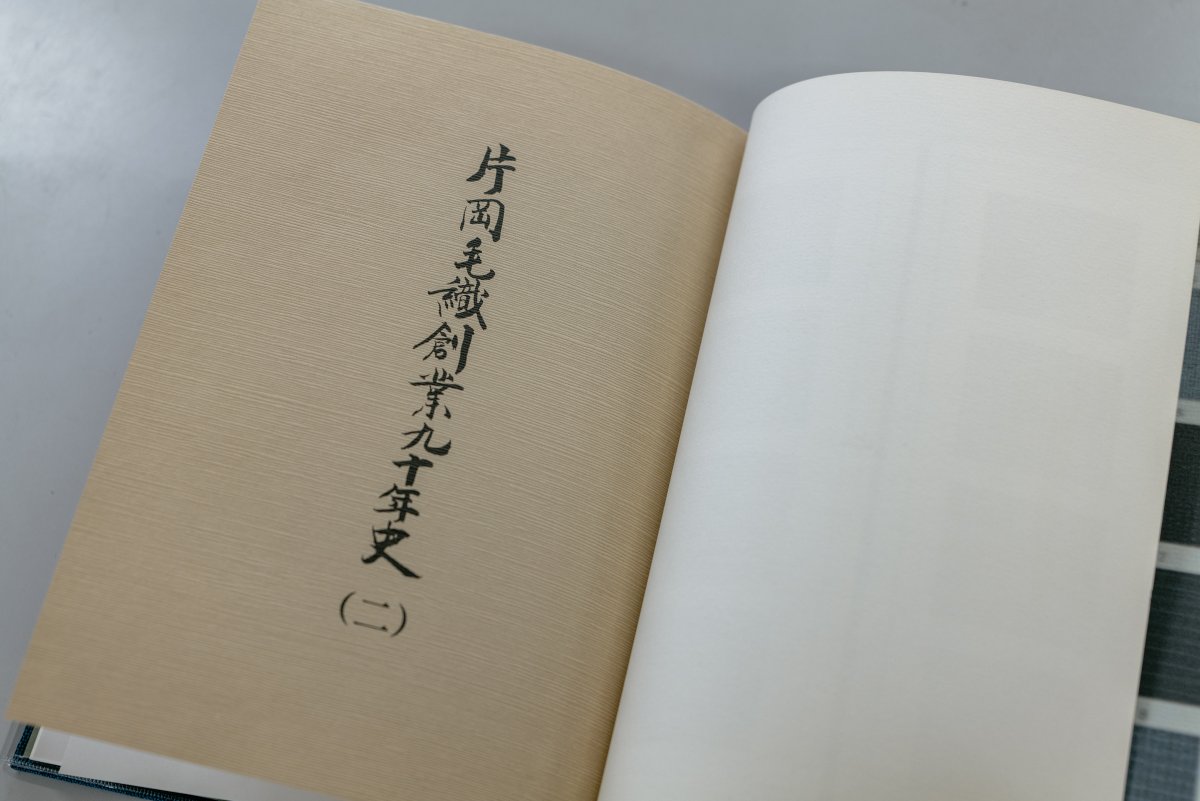 片岡毛織創業九十年史
(二)